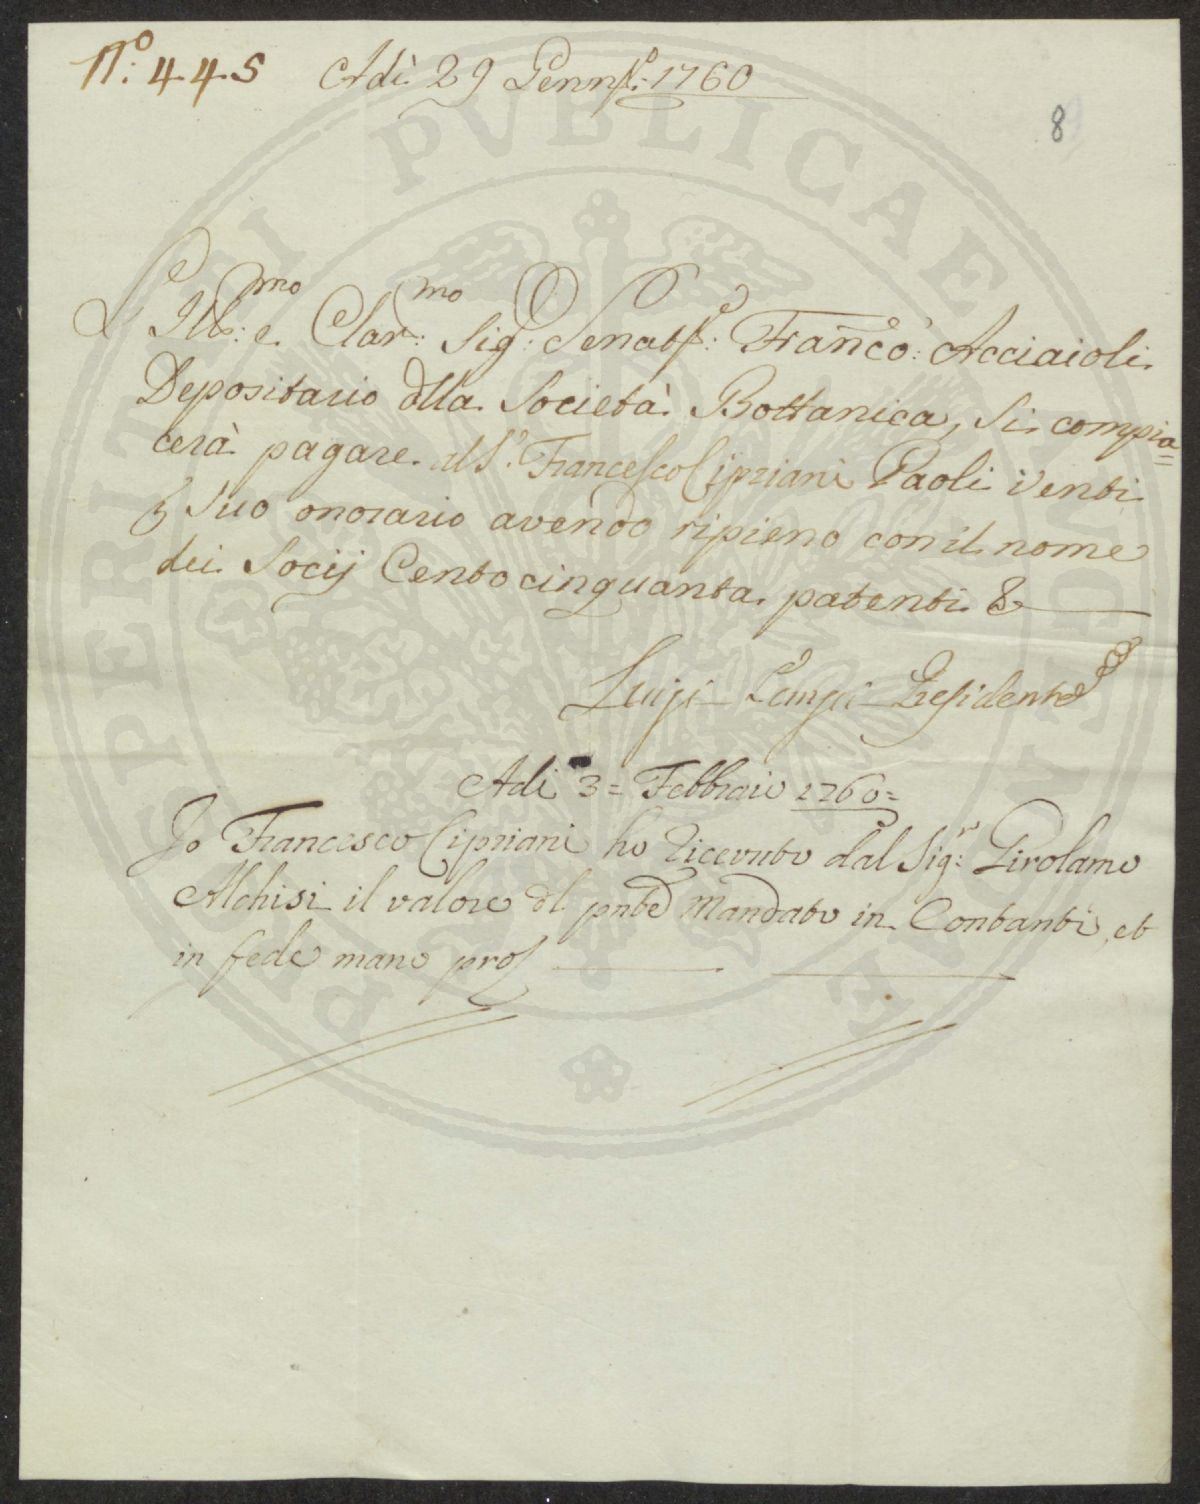 N.º 445 Adì 29 Gennᵒ: 1760
8
L'Ill:mo e Clar:mo Sig: Senatre: Franco: Acciaioli
Depositario dlla Società Bottanica, Si compia=
cerà pagare al S.r Francesco Cipriani Paoli venti
p Suo onorario avendo ripieno con il nome
dei Socij Cento cinquanta patenti &
Luigi Presidente
Adi 3= Febbraio 1760=
Io Francesco Cipriani ho Ricevuto dal Sig:re Girolamo
Alchisi il valore dl pnte Mandato in Contanti, et
in fede mano pro
PERITATI PVBLICAE